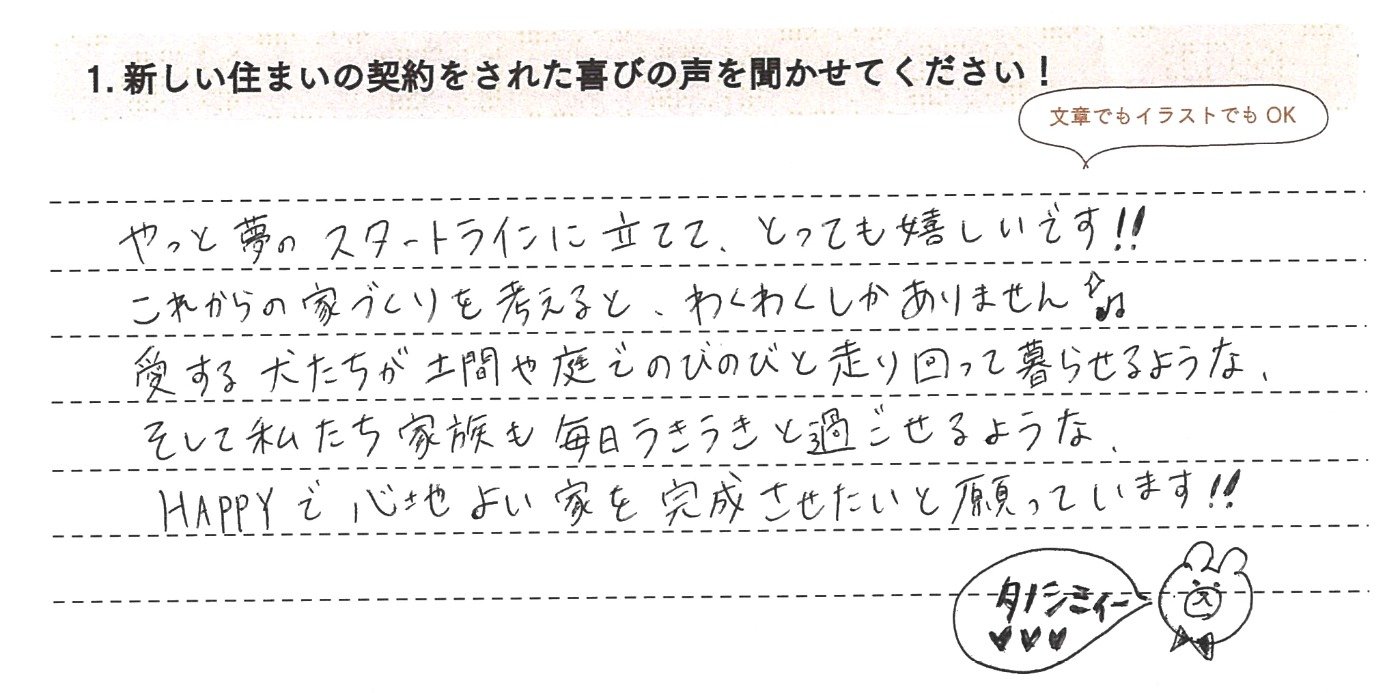 1. 新しい住まいの契約をされた喜びの声を聞かせてください！
文章でもイラストでもOK
やっと夢のスタートラインに立てて、とっても嬉しいです!!
これからの家づくりを考えると、わくわくしかありません
愛する犬たちが土間や庭でのびのびと走り回って暮らせるような、
そして私たち家族も毎日うきうきと過ごせるような、
HAPPYで心地よい家を完成させたいと願っています!!
タノシミィー